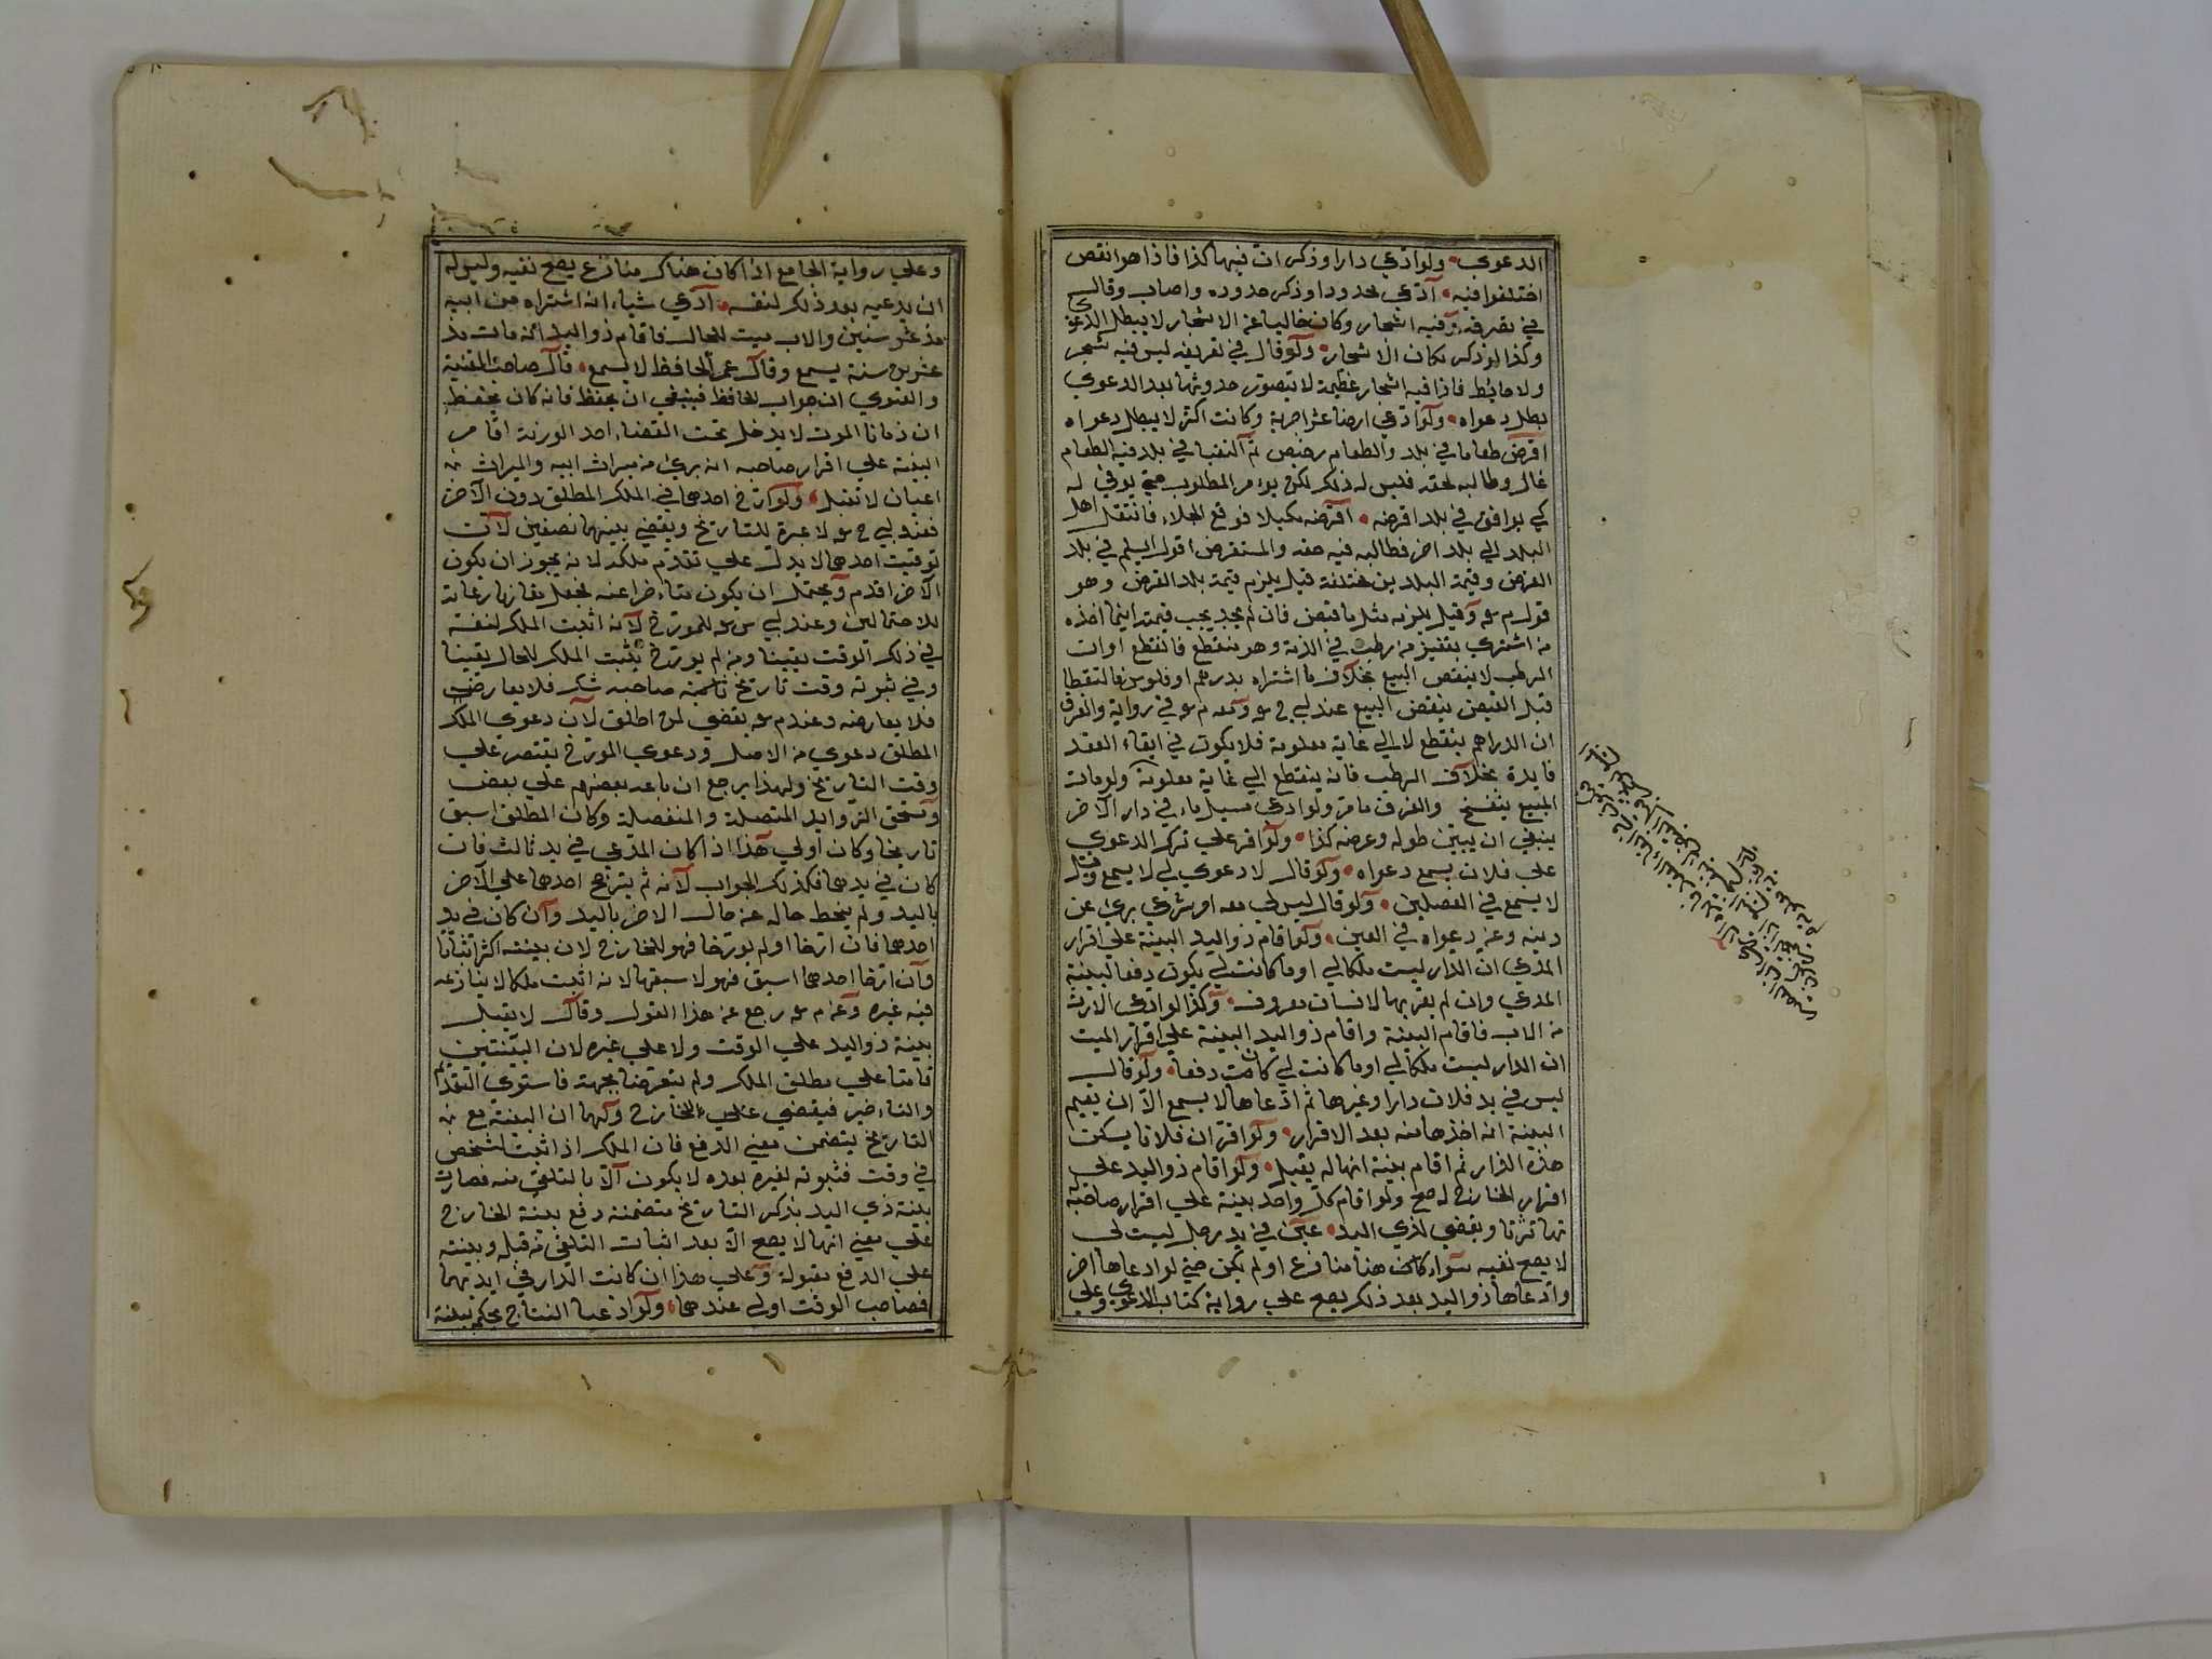 الدعوي ولو ادعي دارا وذكر ان فيها كذا فاذا هو انقص
اختلفوا فيه ادعي محدودا وذكر حدوده واصاب وقال
في تعريفه فيه اشجار وكان خاليا عن الاشجار لا يبطل الدعوي
وكذا لو ذكر مكان الاشجار ولو قال في تعريفه ليس فيه شجر
ولا حايط فاذا فيه اشجار عظيمة لا يتصور حدوثها بعد الدعوي
بطل دعواه ولو ادعي ارضا عشر اجربة وكانت اكثر لا يبطل دعواه
اقرض طعاما في بلد والطعام رخيص ثم التقيا في بلد فيه الطعام
غال وطالبه بحقه فليس له ذلك لكن يؤمر المطلوب حتي يوفي له
كي يوافق في بلد اقرضه اقرضه مكيلا فوقع الجلاء فانتقل اهل
البلد الي بلد اخر فطالبه فيه حقه والمستقرض اقول اسلم في بلد
القرض وقيمة البلدين مختلفة قيل يلزم قيمة بلد القرض وهو
قول م سه وقيل يلزمه مثل ما قبض فان لم يجد يجب قيمته اينما اخذه
من اشتري بقفيز من رطب في الذمة وهو منقطع فانقطع اوان
الرطب لا ينقض البيع بخلاف ما اشتراه بدرهم او فلوس فانقطعا
قبل القبض ينقض البيع عند ابي ح سه ومعه م سه في رواية والفرق
ان الدراهم ينقطع لا الي غاية معلومة فلا يكون في ابقاء العقد
فايدة بخلاف الرطب فانه ينقطع الي غاية معلومة ولو مات
المبيع ينفسخ والفرق ما مر ولو ادعي مسيل ماء في دار الاخر
ينبغي ان يبين طوله وعرضه كذا ولو اقر علي ترك الدعوي
علي فلان يسمع دعواه ولو قال لا دعوي لي لا يسمع وقيل
لا يسمع في الفصلين ولو قال ليس لي معه امر شرعي برئ عن
دينه وعن دعواه في العين ولو اقام ذو اليد البينة علي اقرار
المدعي ان الدار ليست ملكا لي او ما كانت لي يكون دفعا لبينة
المدعي وان لم يقر بها لانسان معروف وكذا لو ادعي الارث
من الاب فاقام البينة واقام ذو اليد البينة علي اقرار الميت
ان الدار ليست ملكا لي او ما كانت لي كان دفعا ولو قال
ليس في يد فلان دارا وغيرها ثم ادعاها لا يسمع الا ان يقيم
البينة انه اخذها منه بعد الاقرار ولو اقر ان فلانا يسكن
هذه الدار ثم اقام بينة انها له يقبل ولو اقام ذو اليد علي
اقرار الخارج له صح ولو اقام كل واحد بينة علي اقرار صاحبه
تهاترتا ويقضي لذي اليد عين في يد رجل ليست لي
لا يصح نفيه سواء كان هنا منازع او لم يكن حتي لو ادعاها اخر
وادعاها ذو اليد بعد ذلك يصح علي رواية كتاب الدعوي وعلي
وعلي رواية الجامع اذا كان هناك منازع يصح نفيه وليس له
ان يدعيه بعد ذلك لنفسه ادعي شياء انه اشتراه من ابيه
مذ عشر سنين والاب ميت للحال فاقام ذو اليد انه مات مذ
عشرين سنة يسمع وقال عمر الحافظ لا يسمع قال صاحب المنية
والفتوي ان جواب الحافظ فينبغي ان يحفظ فانه كان يحفظ
ان زمان الموت لا يدخل تحت القضاء احد الورثة اقام
البينة علي اقرار صاحبه انه برئ من ميراث ابيه والميراث
اعيان لا تقبل ولو ارخ احدهما في الملك المطلق دون الآخر
فعند ابي ح سه لا عبرة للتاريخ ويقضي بينهما نصفين لان
توقيت احدهما لا يدل علي تقدم ملكه لانه يجوز ان يكون
الآخر اقدم ويحتمل ان يكون متاءخرا عنه فجعل مقارنا رعاية
للاحتمالين وعند ابي س سه للمورخ لانه اثبت الملك لنفسه
في ذلك الوقت يقينا ومن لم يورخ يثبت الملك للحال يقينا
وفي ثبوته وقت تاريخ صاحبه شك فلا يعارضه
فلا يعارضه وعند م سه يقضي لمن اطلق لان دعوي الملك
المطلق دعوي من الاصل ودعوي المورخ يقتصر علي
وقت التاريخ ولهذا يرجع ان باعه بعضهم علي بعض
وتستحق الزوايد المتصلة والمنفصلة وكان المطلق اسبق
تاريخا وكان اولي هذا اذا كان المدعي في يد ثالث فان
كان في يدهما فكذلك الجواب لانه لم يترجح احدهما علي الآخر
باليد ولم ينحط حاله عن حال الاخر باليد وان كان في يد
احدهما فان ارخا او لم يورخا فهو للخارج لان بينته اكثر اثباتا
وان ارخا احدهما اسبق فهو لاسبقهما لانه اثبت ملكا لا ينازعه
فيه غيره وعن م سه رجع عن هذا القول وقال لا يقبل
بينة ذو اليد علي الوقت ولا علي غيره لان البينتين
قامتا علي مطلق الملك ولم يتعرضا لجهة فاستوي التقدم
والتاءخير فيقضي للخارج ولهما ان البينة مع
التاريخ يتضمن معني الدفع فان الملك اذا اثبت لشخص
في وقت فثبوته لغيره بعده لا يكون الا بالتلقي منه فصارت
بينة ذي اليد بذكر التاريخ متضمنة دفع بينة الخارج
علي معني انها لا يصح الا بعد اثبات التلقي من قبله وبينته
علي الدفع مقبولة وعلي هذا ان كانت الدار في ايديهما
فصاحب الوقت اولي عندهما ولو ادعيا النتاج يحكم ببينة